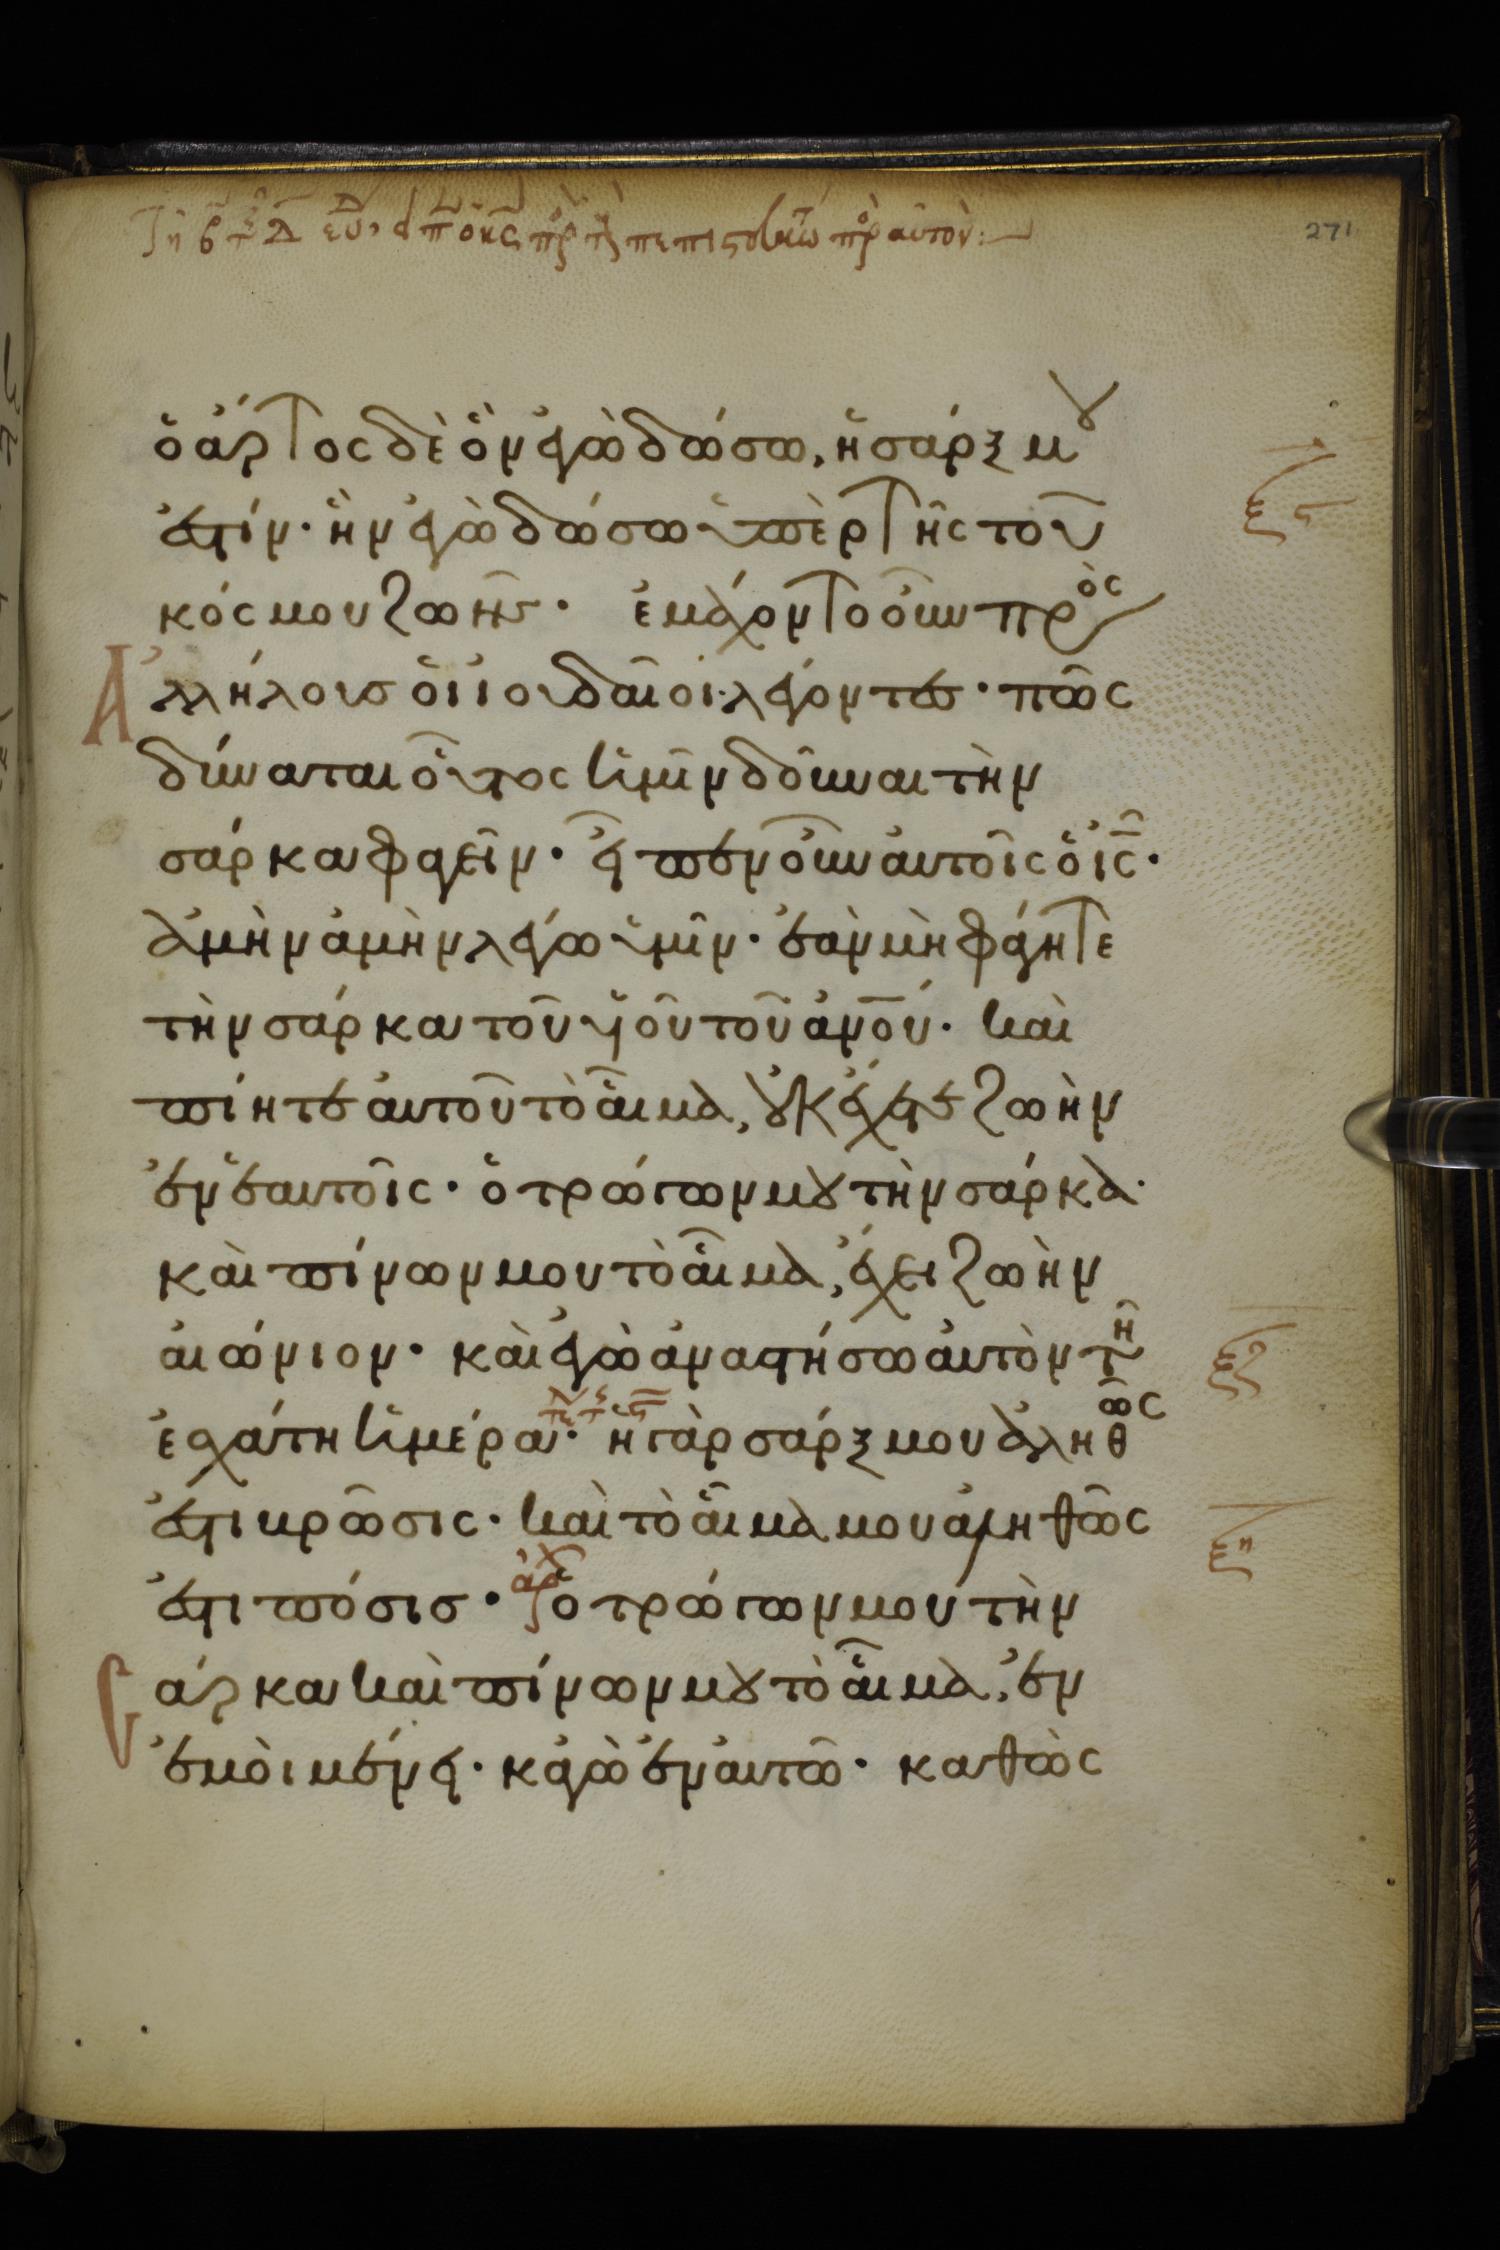 271
ὁ ἄρτος δὲ ὃν ἐγὼ δώσω, ἡ σάρξ μου
ἐστίν· ἣν ἐγὼ δώσω ὑπὲρ τῆς τοῦ
κόσμου ζωῆς· ἐμάχοντο οὖν πρὸς
Ἀλλήλοισ ὁι ἰουδαῖοι· λέγοντες· πῶς
δύναται οὗτος ἡμῖν δοῦναι τὴν
σάρκα φαγεῖν· εἶπεν οὖν αὐτοῖς ὁ ις·
ἀμὴν ἀμὴν λέγω ὑμῖν· ἐὰν μὴ φάγητε
τὴν σάρκα τοῦ ὑοῦ τοῦ ανου· καὶ
πίητε αὐτοῦ τὸ αἷμα, οὐκ ἔχετε ζωὴν
ἐν ἑαυτοῖς· ὁ τρώγων μου τὴν σάρκα·
καὶ πίνων μου τὸ αἷμα, ἔχει ζωὴν
αἰώνιον· καὶ ἐγὼ ἀναστήσω αὐτὸν τῆ
ἐσχάτη ἡμέρα· ἡ γὰρ σάρξ μου ἀληθῶς
ἐστι βρῶσις· καὶ τὸ αἷμα μου ἀληθῶς
ἐστι πόσισ· ὁ τρώγων μου τὴν
Σάρκα καὶ πίνων μου τὸ αἷμα, ἐν
ἐμοὶ μένει· κἀγὼ ἐν αὐτῶ· καθὼς
ξς
ξζ
ξη